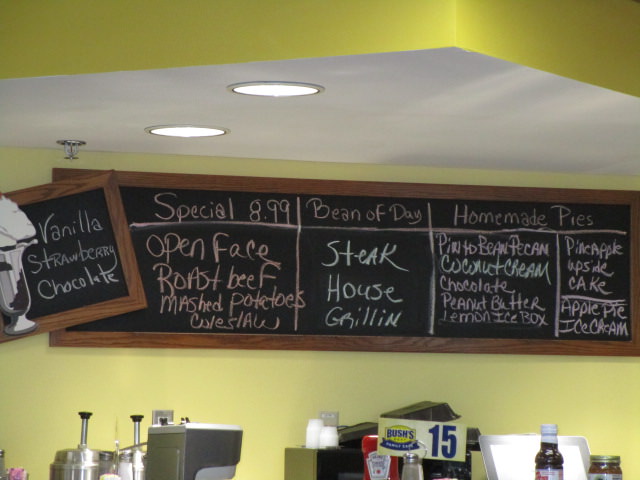 Vanilla
Strawberry
Chocolate
Special 8.99
Open Face
Roast beef
Mashed potatoes
Coleslaw
Bean of Day
Steak
House
Grillin
Homemade Pies
Pinto Bean Pecan
Coconut Cream
Chocolate
Peanut Butter
Lemon Ice Box
Pineapple
upside
cake
Apple Pie
Ice Cream
BUSH'S
FAMILY CAFE
15
HEINZ